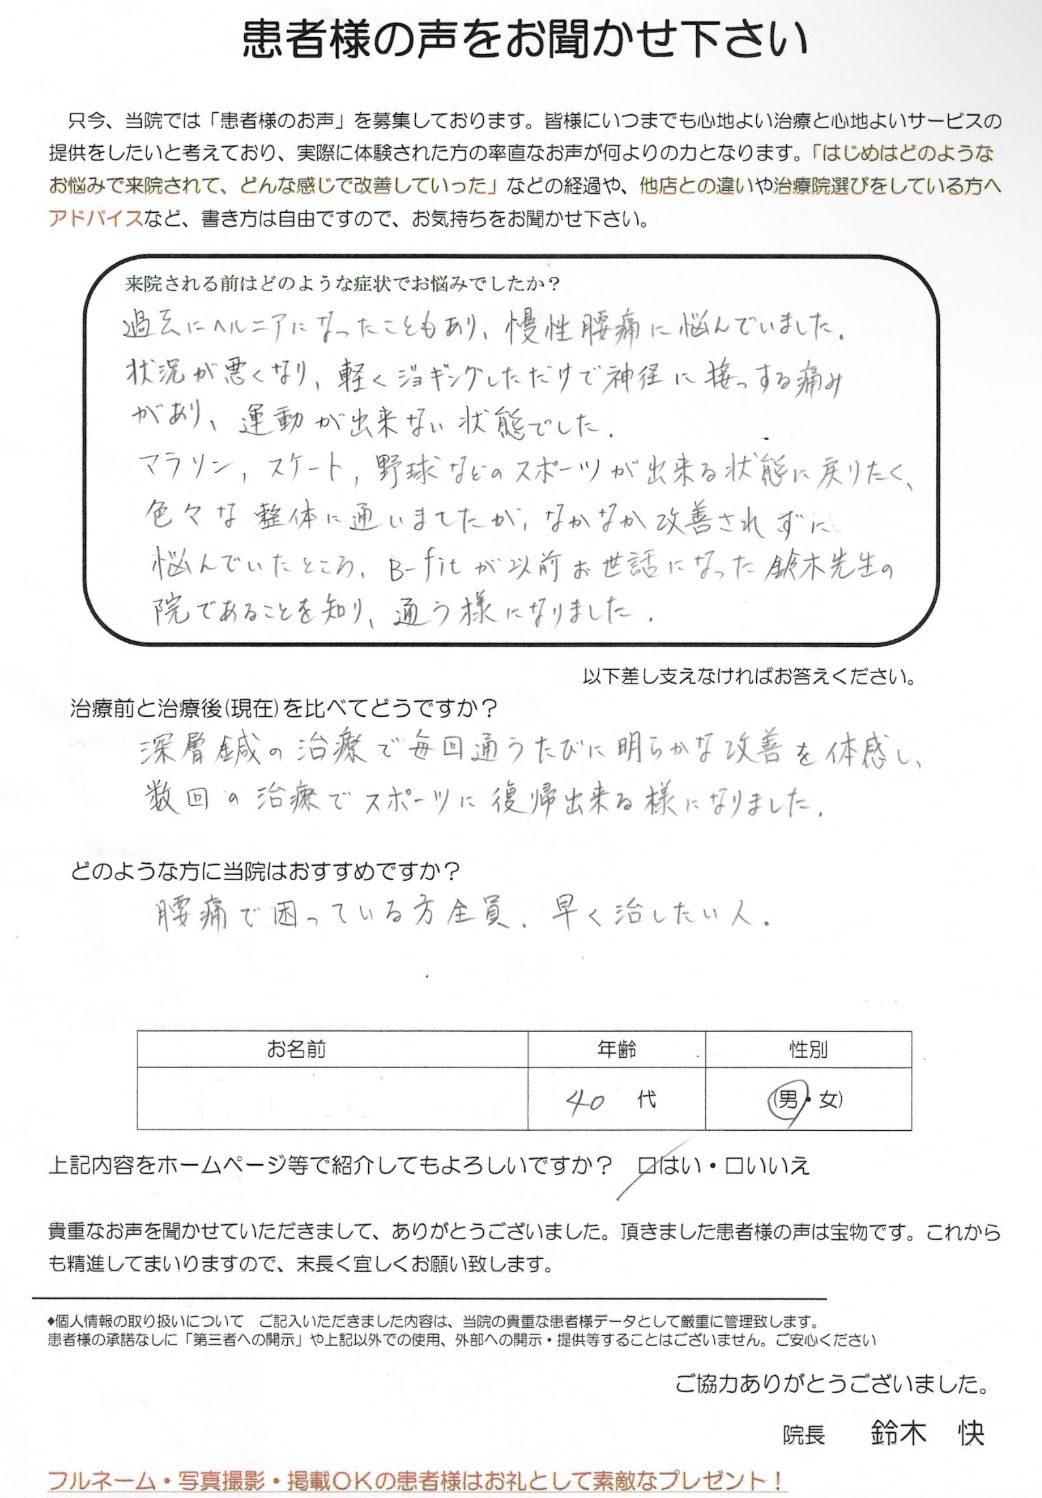 患者様の声をお聞かせ下さい
只今、当院では「患者様のお声」を募集しております。皆様にいつまでも心地よい治療と心地よいサービスの
提供をしたいと考えており、実際に体験された方の率直なお声が何よりの力となります。「はじめはどのような
お悩みで来院されて、どんな感じで改善していった」などの経過や、他店との違いや治療院選びをしている方へ
アドバイスなど、書き方は自由ですので、お気持ちをお聞かせ下さい。
来院される前はどのような症状でお悩みでしたか？
過去にヘルニアになったこともあり、慢性腰痛に悩んでいました.
状況が悪くなり、軽くジョギングしただけで神経に接っする痛み
があり、運動が出来ない状態でした.
マラソン, スケート, 野球などのスポーツが出来る状態に戻りたく、
色々な整体に通いましたが、なかなか改善されずに
悩んでいたところ、B-fitが以前お世話になった鈴木先生の
院であることを知り、通う様になりました.
以下差し支えなければお答えください。
治療前と治療後(現在)を比べてどうですか？
深層鍼の治療で毎回通うたびに明らかな改善を体感し、
数回の治療でスポーツに復帰出来る様になりました.
どのような方に当院はおすすめですか？
腰痛で困っている方全員. 早く治したい人.
お名前 年齢 性別
40 代 (男・女)
上記内容をホームページ等で紹介してもよろしいですか？ □はい・□いいえ
貴重なお声を聞かせていただきまして、ありがとうございました。頂きました患者様の声は宝物です。これから
も精進してまいりますので、末長く宜しくお願い致します。
♦個人情報の取り扱いについて ご記入いただきました内容は、当院の貴重な患者様データとして厳重に管理致します。
患者様の承諾なしに「第三者への開示」や上記以外での使用、外部への開示・提供等することはございません。ご安心ください
ご協力ありがとうございました。
院長 鈴木 快
フルネーム・写真撮影・掲載OKの患者様はお礼として素敵なプレゼント！